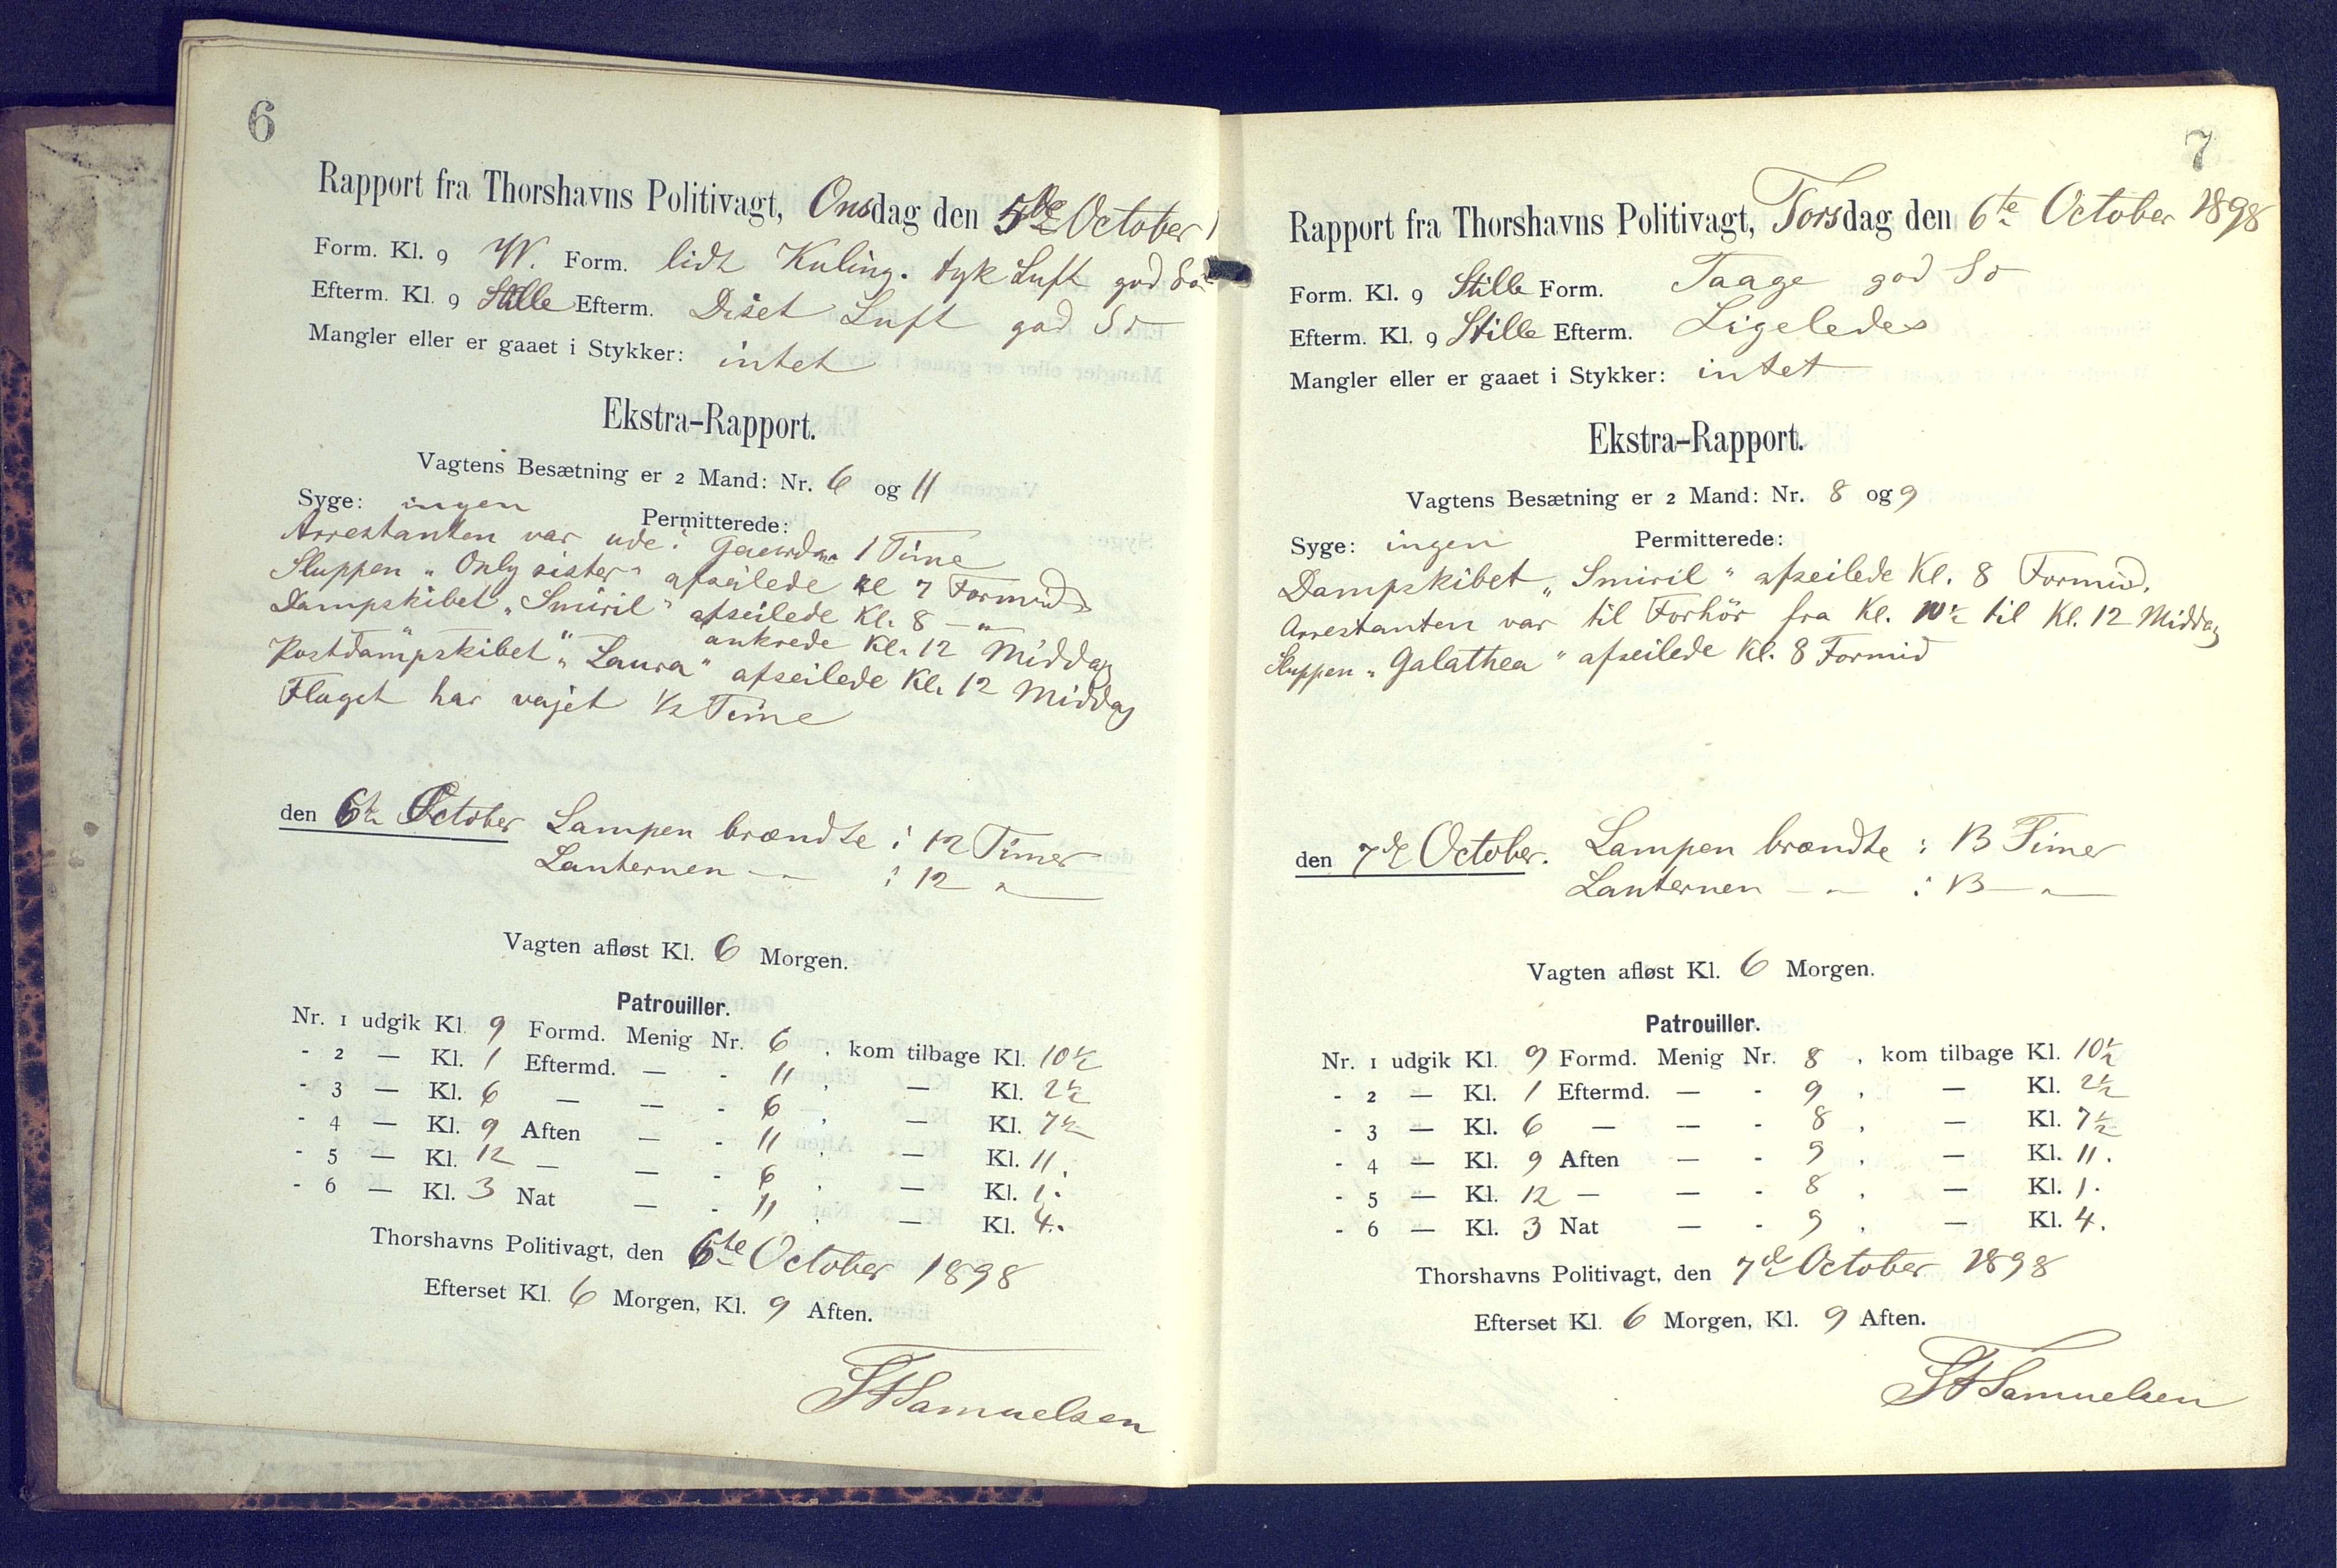 6
Rapport fra Thorshavns Politivagt, Onsdag den 5de October 1
Form. Kl. 9 W. Form. lidt Kuling. tyk Luft god Sø
Efterm. Kl. 9 Stille Efterm. Diset Luft god Sø
Mangler eller er gaaet i Stykker: intet
Ekstra-Rapport.
Vagtens Besætning er 2 Mand: Nr. 6 og 11
Syge: ingen Permitterede:
Arrestanten var ude i Gaarden 1 Time
Sluppen „Only sister" afseilede kl 7 Formid
Dampskibet „Smiril" afseilede Kl. 8 — "
" " ankrede Kl. 12 Middag
Postdampskibet „Laura" afseilede Kl. 12 Middag
Flaget har vajet 1/2 Time
den 6te October Lampen brændte i 12 Timer
Lanternen — " i 12 "
Vagten afløst Kl. 6 Morgen.
Patrouiller.
Nr. 1 udgik Kl. 9 Formd. Menig Nr. 6 , kom tilbage Kl. 10 1/2
- 2 — Kl. 1 Eftermd. — - 11 , — Kl. 2 1/2
- 3 — Kl. 6 — — - 6 , — Kl. 7 1/2
- 4 — Kl. 9 Aften — - 11 , — Kl. 11.
- 5 — Kl. 12 — — - 6 , — Kl. 1.
- 6 — Kl. 3 Nat — - 11 , — Kl. 4.
Thorshavns Politivagt, den 6te October 1898
Efterset Kl. 6 Morgen, Kl. 9 Aften.
Samuelsen
7
Rapport fra Thorshavns Politivagt, Torsdag den 6te October 1898
Form. Kl. 9 Stille Form. Taage god Sø
Efterm. Kl. 9 Stille Efterm. Ligeledes
Mangler eller er gaaet i Stykker: intet
Ekstra-Rapport.
Vagtens Besætning er 2 Mand: Nr. 8 og 9
Syge: ingen Permitterede:
Dampskibet „Smiril" afseilede Kl. 8 Formid.
Arrestanten var til Forhör fra Kl. 10 1/2 til Kl. 12 Middag
Sluppen „Galathea" afseilede Kl. 8 Formid
den 7de October. Lampen brændte i 13 Timer
Lanternen — " i 13 — "
Vagten afløst Kl. 6 Morgen.
Patrouiller.
Nr. 1 udgik Kl. 9 Formd. Menig Nr. 8 , kom tilbage Kl. 10 1/2
- 2 — Kl. 1 Eftermd. — - 9 , — Kl. 2 1/2
- 3 — Kl. 6 — — - 8 , — Kl. 7 1/2
- 4 — Kl. 9 Aften — - 9 , — Kl. 11.
- 5 — Kl. 12 — — - 8 , — Kl. 1.
- 6 — Kl. 3 Nat — - 9 , — Kl. 4.
Thorshavns Politivagt, den 7de October 1898
Efterset Kl. 6 Morgen, Kl. 9 Aften.
Samuelsen